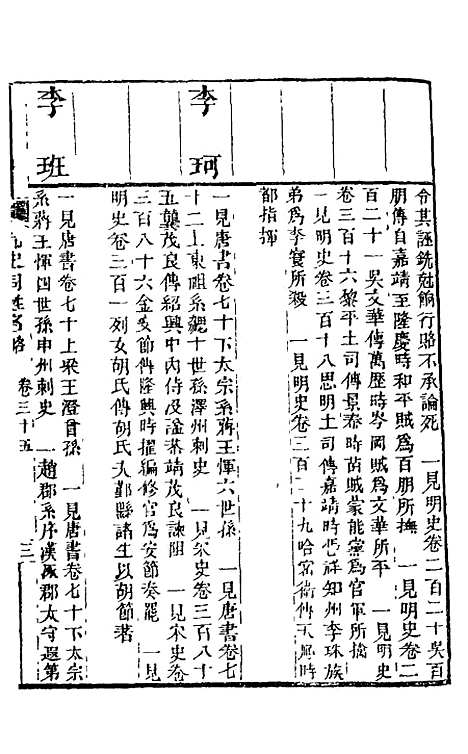 令其誣銑勉餉行賂不承論死　一見明史卷二百二十吳百
朋傳自嘉靖至隆慶時和平賊爲百朋所撫　一見明史卷二
百二十一吳文華傳萬歷時岑岡賊爲文華所平　一見明史
卷三百十六黎平土司傳景泰時苗賊蒙能黨爲官軍所擒
一見明史卷三百十八思明土司傳嘉靖時憑祥知州李珠族
弟爲李寰所殺　一見明史卷三百二十九哈密衛傳天順時
都指揮
李珂
一見唐書卷七十下太宗系蔣王惲六世孫　一見唐書卷七
十二上東祖系觀十世孫澤州刺史　一見宋史卷三百八十
五龔茂良傳紹興中内侍及謚茶靖茂良諫阻　一見宋史卷
三百八十六金安節傳隆興時擢編修官爲安節奏罷　一見
明史卷三百一列女胡氏傳胡氏夫鄞縣諸生以胡節著
李班
一見唐書卷七十上梁王澄曾孫　一見唐書卷七十下太宗
系蔣王惲四世孫申州刺史　一趙郡系序漢 郡太守遐第
九史同姓名略　卷三十五　三